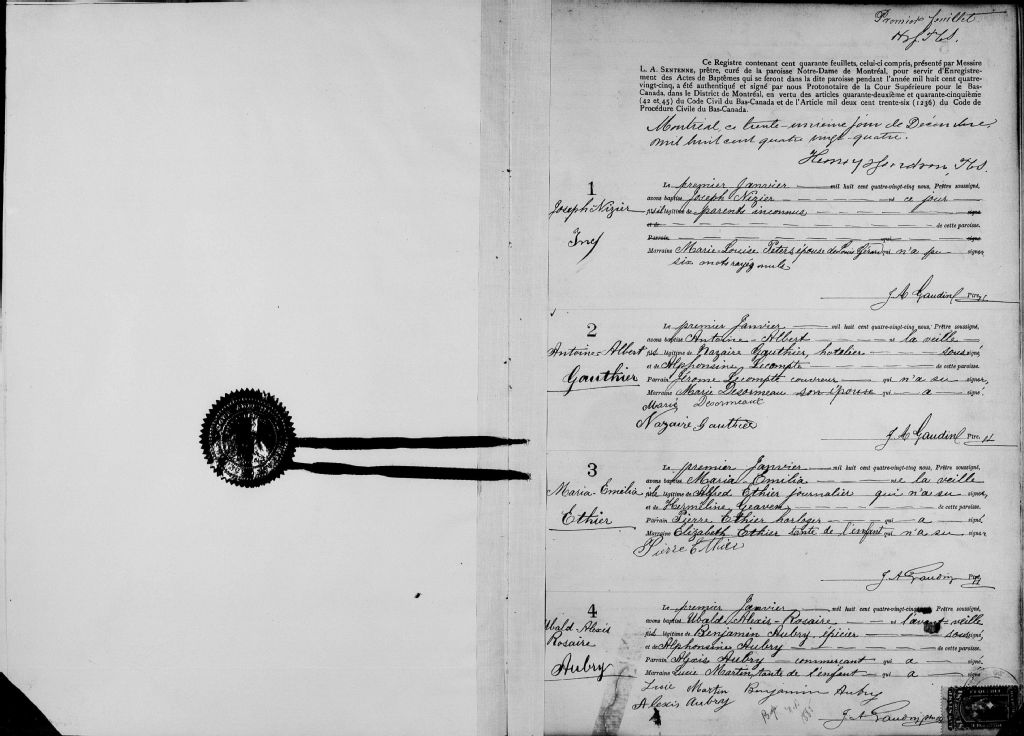 Premier feuillet
Ce Registre contenant cent quarante feuillets, celui-ci compris, présenté par Messire
L. A. SENTENNE, prêtre, curé de la paroisse Notre-Dame de Montréal, pour servir d'Enregistre-
ment des Actes de Baptêmes qui se feront dans la dite paroisse pendant l'année mil huit cent quatre-
vingt-cinq, a été authentiqué et signé par nous Protonotaire de la Cour Supérieure pour le Bas-
Canada, dans le District de Montréal, en vertu des articles quarante-deuxième et quarante-cinquième
(42 et 45) du Code Civil du Bas-Canada et de l'Article mil deux cent trente-six (1236) du Code de
Procédure Civile du Bas-Canada.
Montréal, ce trente-unième jour de Décembre
mil huit cent quatre vingt-quatre.
1
Joseph Nizier
Le premier Janvier mil huit cent quatre-vingt-cinq nous, Prêtre soussigné,
avons baptisé Joseph Nizier né ce jour
fils légitime de parents inconnus signé
et de de cette paroisse.
Parrain qui signé
Marraine Marie Louise Peters épouse de Louis Gérard qui n'a pu signer
six mots rayés nuls
J. A. Gaudin Ptre.
2
Antoine-Albert
Gauthier
Le premier Janvier mil huit cent quatre-vingt-cinq nous, Prêtre soussigné,
avons baptisé Antoine-Albert né la veille
fils légitime de Nazaire Gauthier, hotelier soussigné
et de Alphonsine Lecompte de cette paroisse.
Parrain Jérome Lecompte couvreur qui n'a su signer,
Marraine Marie Desormeau son épouse qui a signé.
Marie Desormeaux
Nazaire Gauthier
J. A. Gaudin Ptre.
3
Maria-Emélia
Ethier
Le premier Janvier mil huit cent quatre-vingt-cinq nous, Prêtre soussigné,
avons baptisé Maria Emilia née la veille
fille légitime de Alfred Ethier journalier qui n'a su signer,
et de Hermeline de cette paroisse.
Parrain Pierre Ethier horloger qui a signé.
Marraine Elizabeth Ethier tante de l'enfant qui n'a su signer
Pierre Ethier
J. A. Gaudin Ptre
4
Ubald-Alexis
Rosaire
Aubry
Le premier Janvier mil huit cent quatre-vingt-cinq nous, Prêtre soussigné,
avons baptisé Ubald Alexis-Rosaire né l'avant veille
fils légitime de Benjamin Aubry, épicier soussigné,
et de Alphonsine Aubry de cette paroisse.
Parrain Alexis Aubry commerçant qui a signé.
Marraine Lucie Martin, tante de l'enfant qui a signé
Lucie Martin Benjamin Aubry
Alexis Aubry
J. A. Gaudin ptre